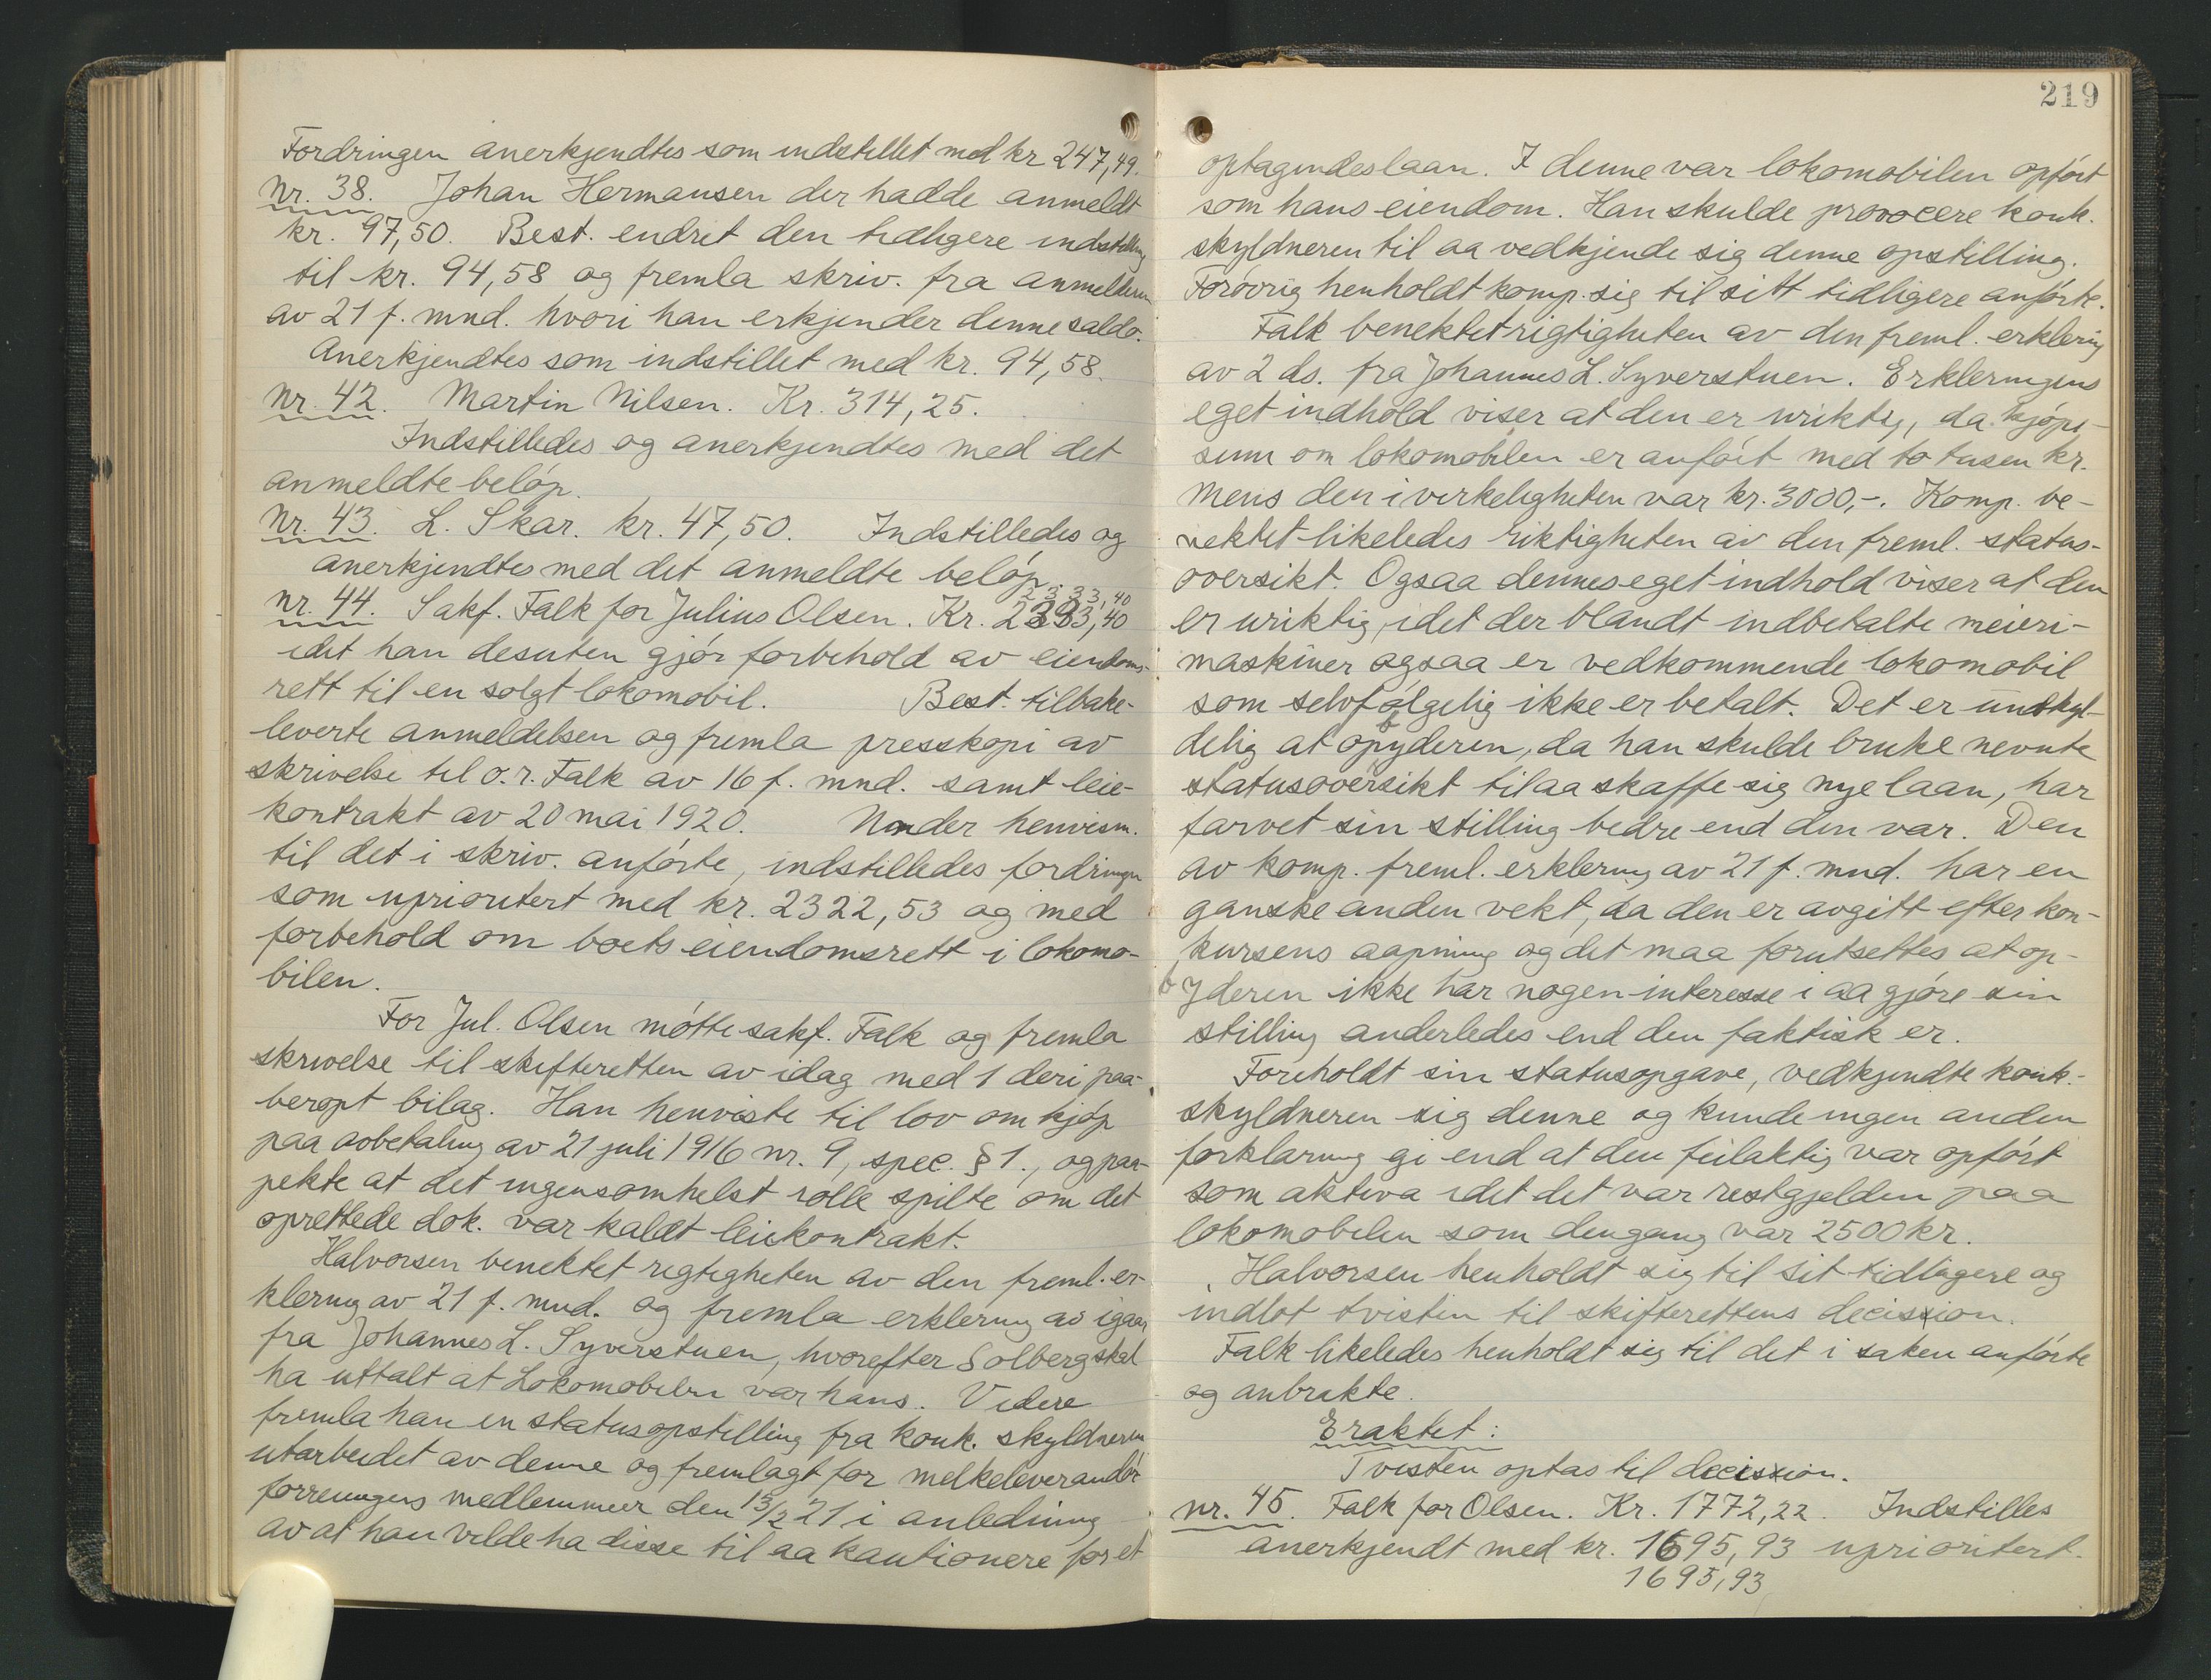 Fordringen anerkjendtes som indstillet med kr 247,49.
Nr. 38. Johan Hermansen der hadde anmeldt
kr. 97,50. Best. endret den tidligere indstilling
til kr. 94,58 og fremla skriv. fra anmelderen
av 21 f. mnd. hvori han erkjender denne saldo.
Anerkjendtes som indstillet med kr. 94,58.
Nr. 42. Martin Nilsen. Kr. 314,25.
Indstilledes og anerkjendtes med det
anmeldte beløp.
Nr. 43. L. Skar. kr. 47,50. Indstilledes og
anerkjendtes med det anmeldte beløp
2333,40
Nr. 44. Sakf. Falk for Julius Olsen. Kr. 2333,40
idet han desuten gjør forbehold av eiendoms-
rett til en solgt lokomobil. Best. tilbake-
leverte anmeldelsen og fremla presskopi av
skrivelse til o.r. Falk av 16 f. mnd. samt leie-
kontrakt av 20 mai 1920. Under henvisn.
til det i skriv. anførte, indstilledes fordringen
som uprioritert med kr. 2322,53 og med
forbehold om boets eiendomsrett i lokomo-
bilen.
For Jul. Olsen møtte sakf. Falk og fremla
skrivelse til skifteretten av idag med 1 deri paa-
beropt bilag. Han henviste til lov om kjøp
paa avbetaling av 21 juli 1916 nr. 9, spec. § 1., og paa-
pekte at det ingensomhelst rolle spilte om det
oprettede dok. var kaldt leiekontrakt.
Halvorsen benektet rigtigheten av den freml. er-
klering av 21 f. mnd. og fremla erklering av igaar
fra Johannes L. Syverstuen, hvorefter Solberg skal
ha uttalt at Lokomobilen var hans. Videre
fremla han en statusopstilling fra konk. skyldneren
utarbeidet av denne og fremlagt for melkeleverandør
foreningens medlemmer den 15/2 21 i anledning
av at han vilde ha disse til aa kautionere for et
219
optagendes laan. I denne var lokomobilen opført
som hans eiendom. Han skulde provocere konk.
skyldneren til aa vedkjende sig denne opstilling.
Forøvrig henholdt komp. sig til sitt tidligere anførte.
Falk benektet rigtigheten av den freml. erklering
av 2 ds. fra Johannes L. Syverstuen. Erkleringens
eget indhold viser at den er uriktig, da kjøpe-
sum om lokomobilen er anført med to tusen kr.
mens den i virkeligheten var kr. 3000,-. Komp. be-
nektet likeledes riktigheten av den freml. status-
oversikt. Ogsaa dennes eget indhold viser at den
er uriktig, idet der blandt indbetalte meieri-
maskiner ogsaa er vedkommende lokomobil
som selvfølgelig ikke er betalt. Det er undskyl-
delig at opbyderen, da han skulde bruke nevnte
statusoversikt til aa skaffe sig nye laan, har
farvet sin stilling bedre end den var. Den
av komp. freml. erklering av 21 f. mnd. har en
ganske anden vekt, da den er avgitt efter kon-
kursens aapning og det maa forutsettes at op-
byderen ikke har nogen interesse i aa gjøre sin
stilling anderledes end den faktisk er.
Foreholdt sin statusopgave, vedkjendte konk.-
skyldneren sig denne og kunde ingen anden
forklaring gi end at den feilaktig var opført
som aktiva idet det var restgjelden paa
lokomobilen som dengang var 2500 kr.
Halvorsen henholdt sig til sit tidligere og
indlot tvisten til skifterettens decission.
Falk likeledes henholdt sig til det i saken anførte
og anbrakte.
Eraktet:
Tvisten optas til decission.
nr. 45. Falk for Olsen. Kr. 1772,22. Indstilles
anerkjendt med kr. 1695,93 uprioritert.
1695,93